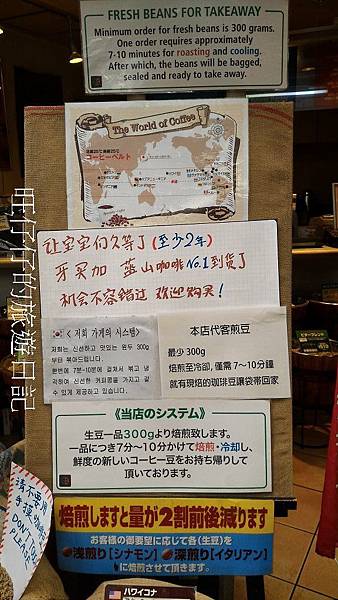 FRESH BEANS FOR TAKEAWAY
Minimum order for fresh beans is 300 grams.
One order requires approximately
7-10 minutes for roasting and cooling.
After which, the beans will be bagged,
sealed and ready to take away.
The World of Coffee
コーヒーベルト
让宝宝们久等了(至少2年)
牙买加 蓝山咖啡No.1到货了
机会不容错过 欢迎购买!
< 저희 가게의 시스템>
저희는 신선하고 맛있는 원두 300g
부터 볶아드립니다.
한번에 7분-10분에 걸쳐서 볶고 냉
각하여 신선한 커피콩을 가지고 갈
수 있게 제공하고 있습니다.
本店代客煎豆
最少 300g
焙煎至冷却, 僅需 7~10分鐘
就有現焙的咖啡豆讓袋帯回家
《当店のシステム》
生豆一品300gより焙煎致します。
一品につき7分〜10分かけて焙煎・冷却し、
鮮度の新しいコーヒー豆をお持ち帰りして
頂いております。
焙煎しますと量が2割前後減ります
お客様の御要望に応じて各(生豆)を
浅煎り[シナモン] 深煎り[イタリアン]
に焙煎させて頂きます。
请不要用
手摸
DON'T
PLEASE
ハワイコナ
旺仔仔的旅遊日記